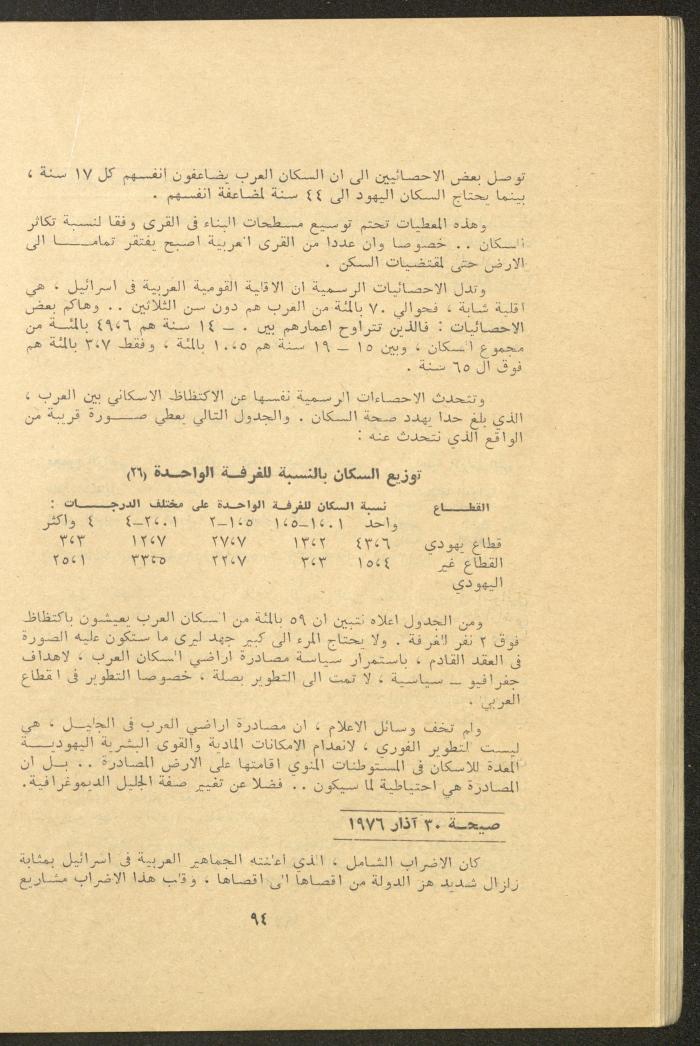 توصل بعض الاحصائيين الى ان السكان العرب يضاعفون انفسهم كل ١٧ سنة ،
بينما يحتاج السكان اليهود الى ٤٤ سنة لمضاعفة انفسهم .
وهذه المعطيات تحتم توسيع مسطحات البناء في القرى وفقا لنسبة تكاثر
السكان .. خصوصا وان عددا من القرى العربية اصبح يفتقر تمامـــا الى
الارض حتى لمقتضيات السكن .
وتدل الاحصائيات الرسمية ان الاقلية القومية العربية في اسرائيل ، هي
اقلية شابة ، فحوالي ٧٠ بالمئة من العرب هم دون سن الثلاثين .. وهاكم بعض
الاحصائيات : فالذين تتراوح اعمارهم بين ٠ ـ ١٤ سنة هم ٤٩،٦ بالمئـة من
مجموع السكان ، وبين ١٥ ـ ١٩ سنة هم ١٠،٥ بالمئة ، وفقط ٣،٧ بالمئة هم
فوق ال ٦٥ سنة .
وتتحدث الاحصاءات الرسمية نفسها عن الاكتظاظ الاسكاني بين العرب ،
الذي بلغ حدا يهدد صحة السكان . والجدول التالي يعطي صـــورة قريبة من
الواقع الذي نتحدث عنه :
توزيع السكان بالنسبة للغرفـة الواحـدة (٢٦)
القطـــاع نسبة السكان للغرفة الواحدة على مختلف الدرجـــات :
واحد ١،٠١–١،٥ ١،٥–٢ ٢،٠١–٤ ٤ واكثر
قطاع يهودي ٤٣،٦ ١٣،٢ ٢٧،٧ ١٢،٧ ٣،٣
القطاع غير ١٥،٤ ٣،٣ ٢٢،٧ ٣٣،٥ ٢٥،١
اليهودي
ومن الجدول اعلاه نتبين ان ٥٩ بالمئة من السكان العرب يعيشون باكتظاظ
فوق ٢ نفر الغرفة . ولا يحتاج المرء الى كبير جهد ليرى ما ستكون عليه الصورة
في العقد القادم ، باستمرار سياسة مصادرة اراضي السكان العرب ، لاهداف
جغرافيو ـ سياسية ، لا تمت الى التطوير بصلة ، خصوصا التطوير في القطاع
العربي .
ولم تخف وسائل الاعلام ، ان مصادرة اراضي العرب في الجليـل ، هي
ليست للتطوير الفوري ، لانعدام الامكانات المادية والقوى البشرية اليهوديـــة
المعدة للاسكان في المستوطنات المنوي اقامتها على الارض المصادرة .. بـل ان
المصادرة هي احتياطية لما سيكون .. فضلا عن تغيير صفة الجليل الديموغرافية.
صيحـة ٣٠ آذار ١٩٧٦
كان الاضراب الشامل ، الذي اعلنته الجماهير العربية في اسرائيل بمثابة
زلزال شديد هز الدولة من اقصاها الى اقصاها ، وقلب هذا الاضراب مشاريع
٩٤